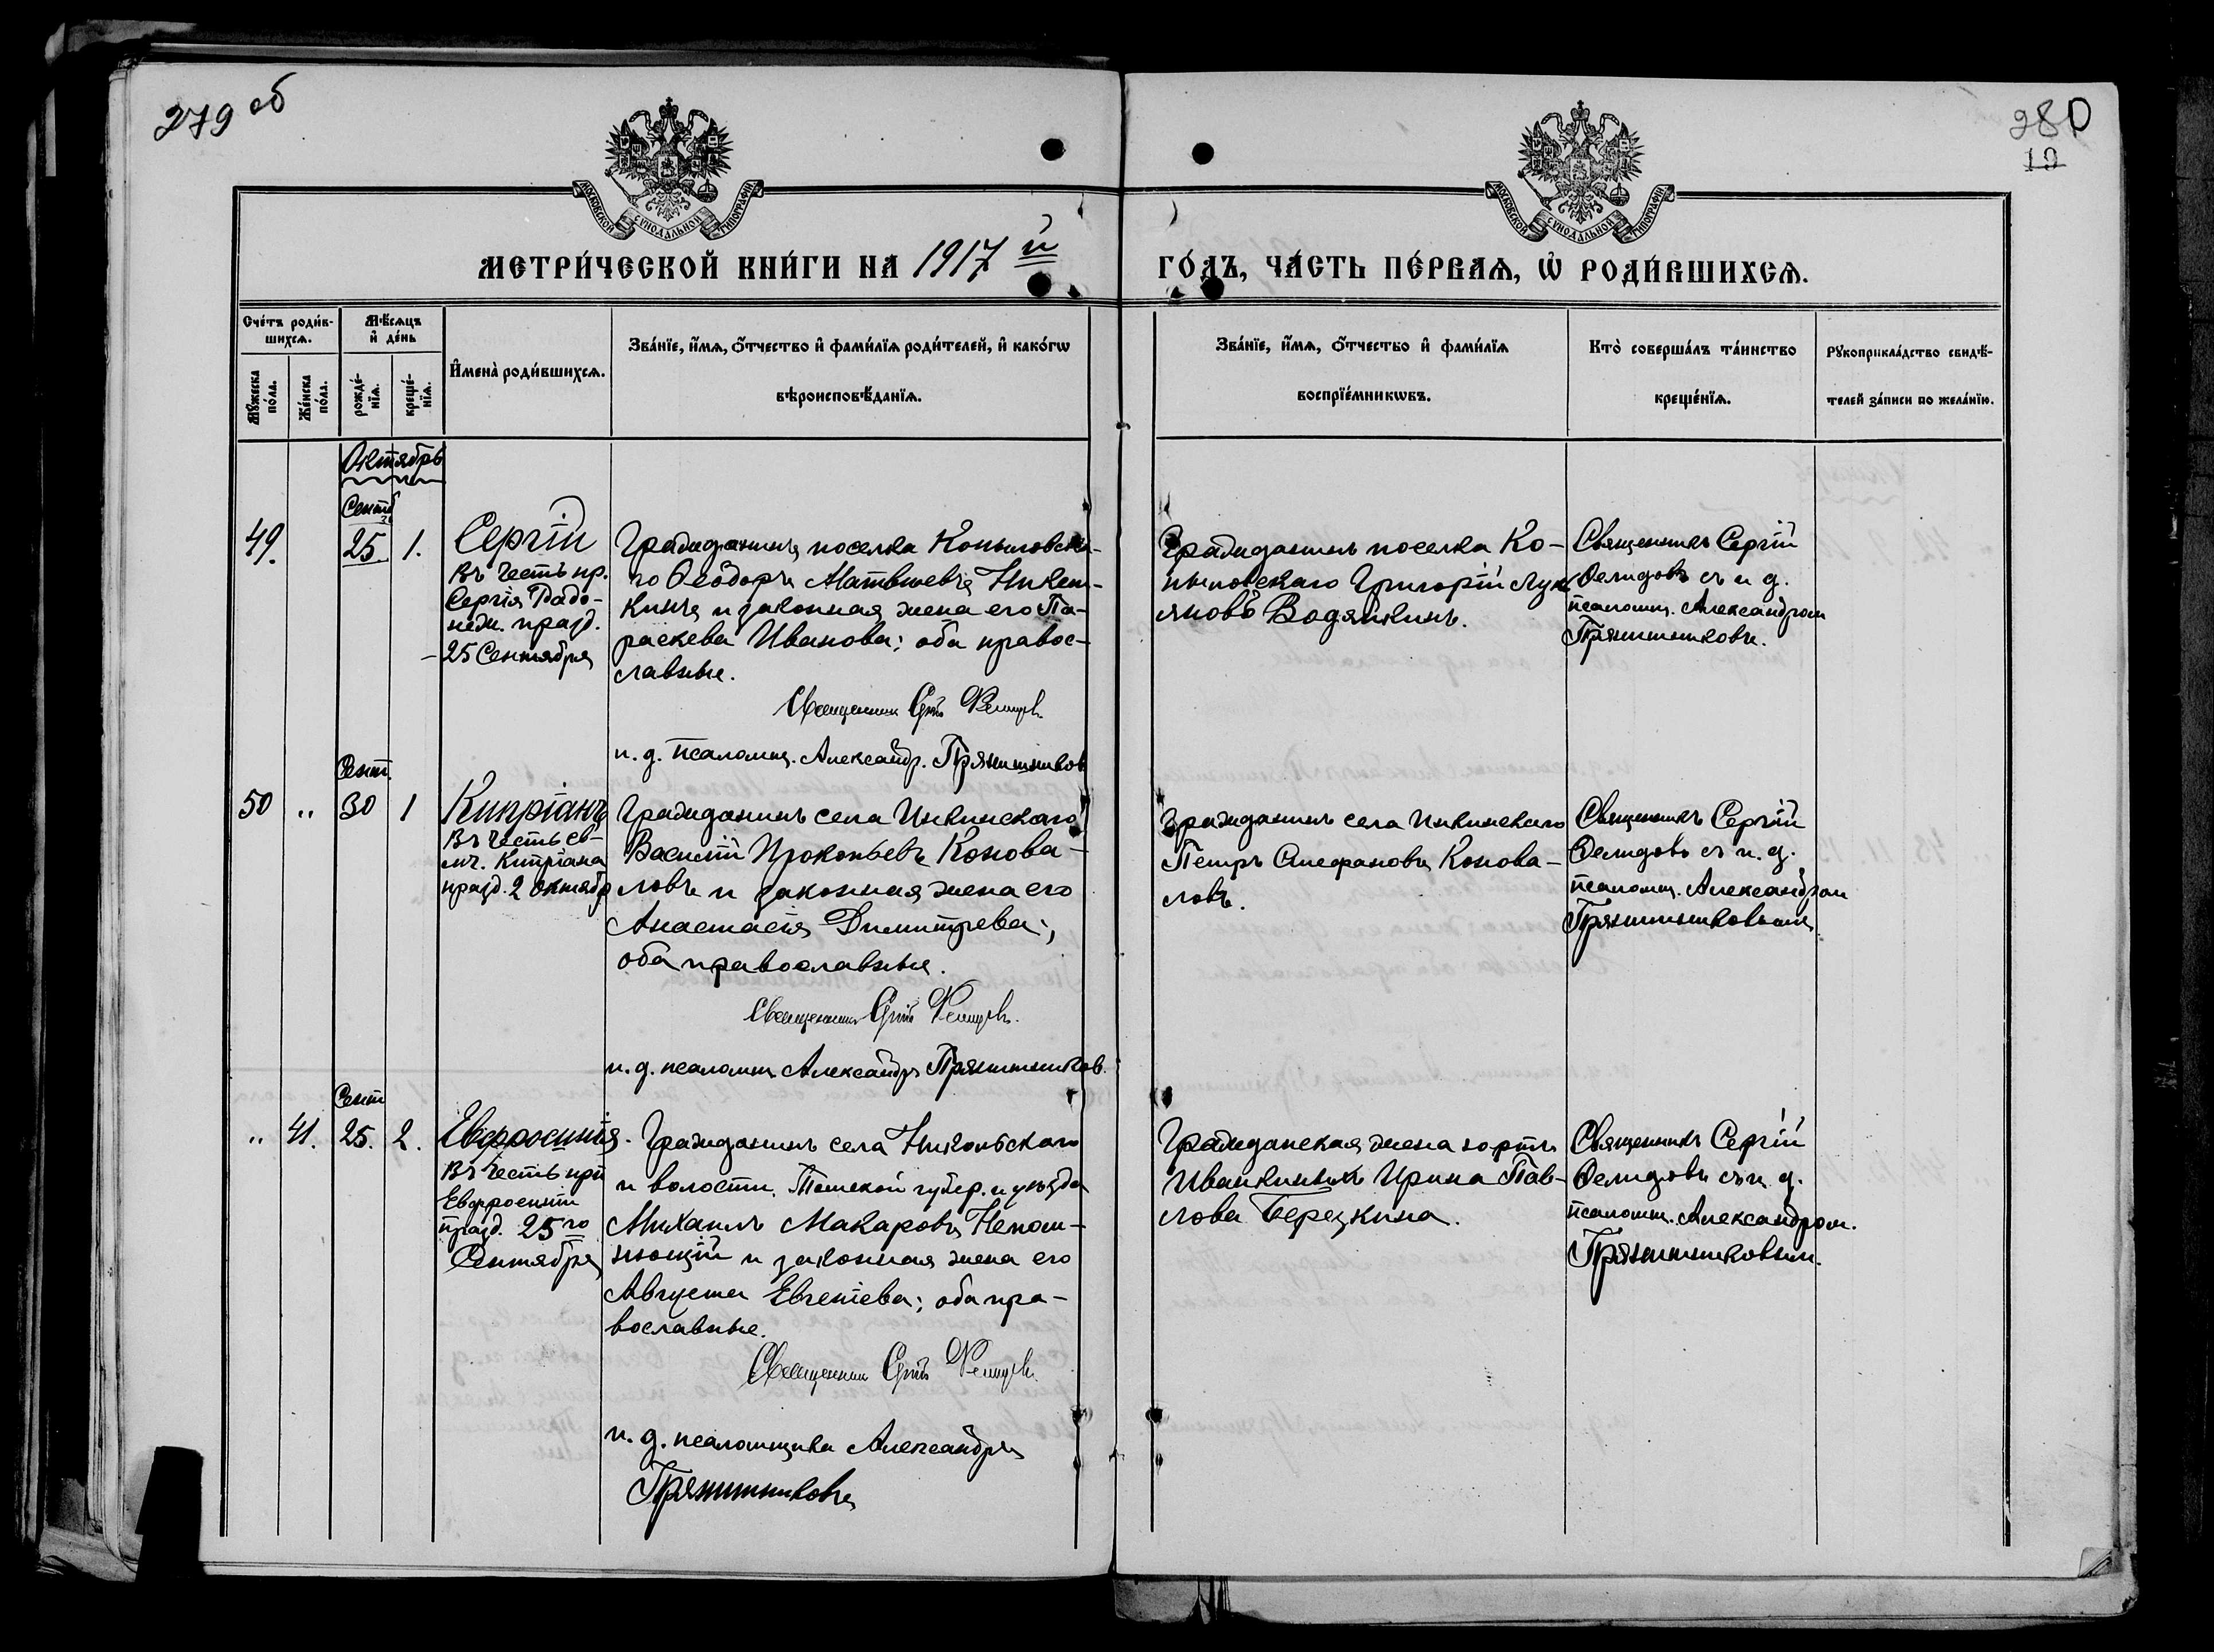 279 об
280
10
МОСКОВСКОЙ СѴНОДАЛЬНОЙ ТИПОГРАФІИ
МОСКОВСКОЙ СѴНОДАЛЬНОЙ ТИПОГРАФІИ
МЕТРИ́ЧЕСКОЙ КНИ́ГИ НА 1917 й
ГО́ДЪ, ЧА́СТЬ ПЕ́РВАѦ, Ѽ РОДИ́ВШИХСѦ.
Сче́тъ роди́в-
шихсѧ.
Мѣ́сѧцъ
и҆ де́нь
Мꙋ́жеска по́ла.
Же́нска по́ла.
рожде́-нїѧ.
креще́-нїѧ.
И҆мена̀ роди́вшихсѧ.
Зва́нїе, и҆́мѧ, ѻ҆́тчество и҆ фами́лїѧ роди́телей, и҆ како́гѡ
вѣроисповѣ́данїѧ.
Зва́нїе, и҆́мѧ, ѻ҆́тчество и҆ фами́лїѧ
воспрїе́мникѡвъ.
Кто̀ соверша́лъ та́инство
креще́нїѧ.
Рꙋкоприкла́дство свидѣ́-
телей за́писи по жела́нїю.
Октябрь
Сент
49.
25
1.
Сергій
Въ честь пр.
Сергія Радо-
неж. празд.
25 Сентября
Гражданинъ поселка Копыловска-
го Ѳеодоръ Матвѣевъ Никит-
кинъ и законная жена его Па-
раскева Иванова; оба правос-
лавные.
Священник
и. д. псаломщ. Александр. Прянишников
Гражданинъ поселка Ко-
пыловскаго Григорій Лукі-
яновъ Водянкинъ.
Священникъ Сергій
съ и д.
псаломщ. Александром
Прянишниковъ.
Сент.
50
"
30
1
Кипріанъ
Въ честь св-
мч. Кипріана
празд. 2 октябр
Гражданинъ села Инкинскаго
Василій Прокопьевъ Конова-
ловъ и законная жена его
Анастасія Димитрева;
оба православные.
Священник
и. д. псаломщ Александръ Прянишников.
Гражданинъ села Инкинскаго
Петръ Стефановъ Конова-
ловъ.
Священникъ Сергій
съ и. д.
псаломщ. Александром
Прянишниковымъ
Сент
"
41.
25.
2.
Евфросинія.
Въ честь прп
Евфросиніи
празд. 25го
Сентября
Гражданинъ села Никольскаго
и волости. Томской губер. и уѣзда
Михаилъ Макаровъ Непом-
нющій и законная жена его
Августа Евгеніева; оба пра-
вославные.
Священник
и. д. псаломщика Александръ
Прянишниковъ
Гражданская жена юртъ
Иванкиныхъ Ирина Пав-
лова Березкина.
Священникъ Сергій
съ и. д.
псаломщ. Александром.
Прянишниковым.